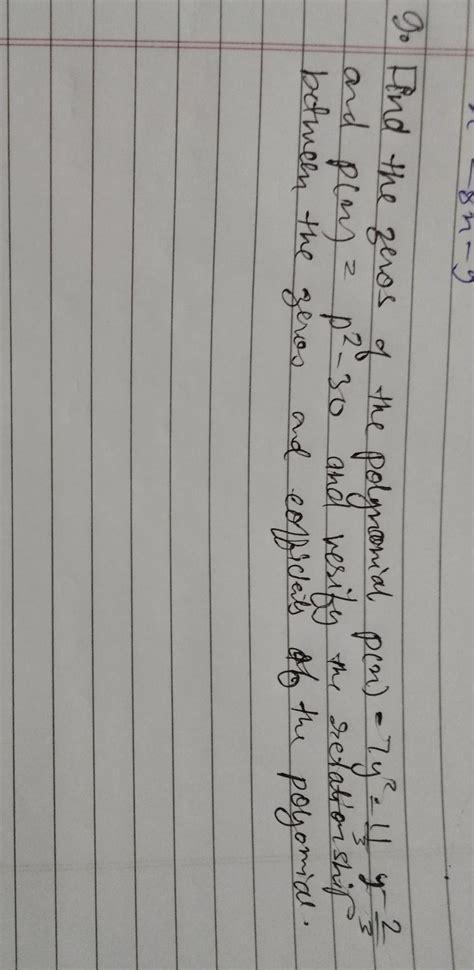 x² - 8x - 9
9. Find the zeros of the polynomial p(x) = 7y² - 11/3 y - 2/3
and p(x) = p² - 30 and verify the relationship
between the zeros and
of the polyomial.